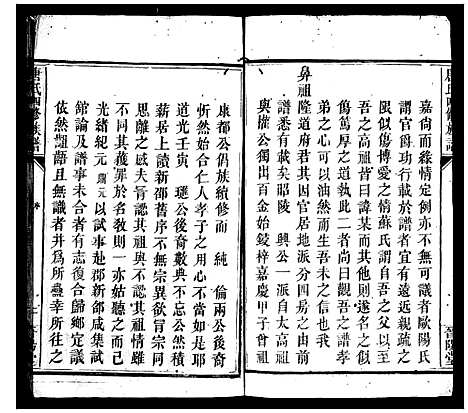 嘉尚而緣情定制亦不無可議者歐陽氏
譜官爵功行載於譜者宜有遠近親疏之
限似傷博愛之情蘇氏謂自吾之父以至
吾之高祖皆曰諱某而其他則遂曰名亦
傷篤厚之道執此二者尚曰觀吾之譜孝
弟之心可以油然而生吾未之信也
鼻祖隆道府君因其官居地派別四房之
譜悉有載矣昭陵 興公一派自太高
與權公獨出百金始鋟梓嘉慶甲子會祖
康都公倡族續修而 純 倫兩公後裔
忻然始合仁人孝子之用心不當如是耶
道光壬寅 璡公後裔數典不忘公然積
薪居上顛倒舊譜序不無宗異欲冒宗同
思離之惑夫冒認其祖與不認其祖情雖
不同其獲罪於名教則一亦姑聽之而已
光緒紀元 以試事赴郡新邵咸集試
館論及譜事未合者有志復合歸鄉定議
茲然以齟語且無識者并爲所蠱幸所往之
唐氏四修族譜
晉陽堂